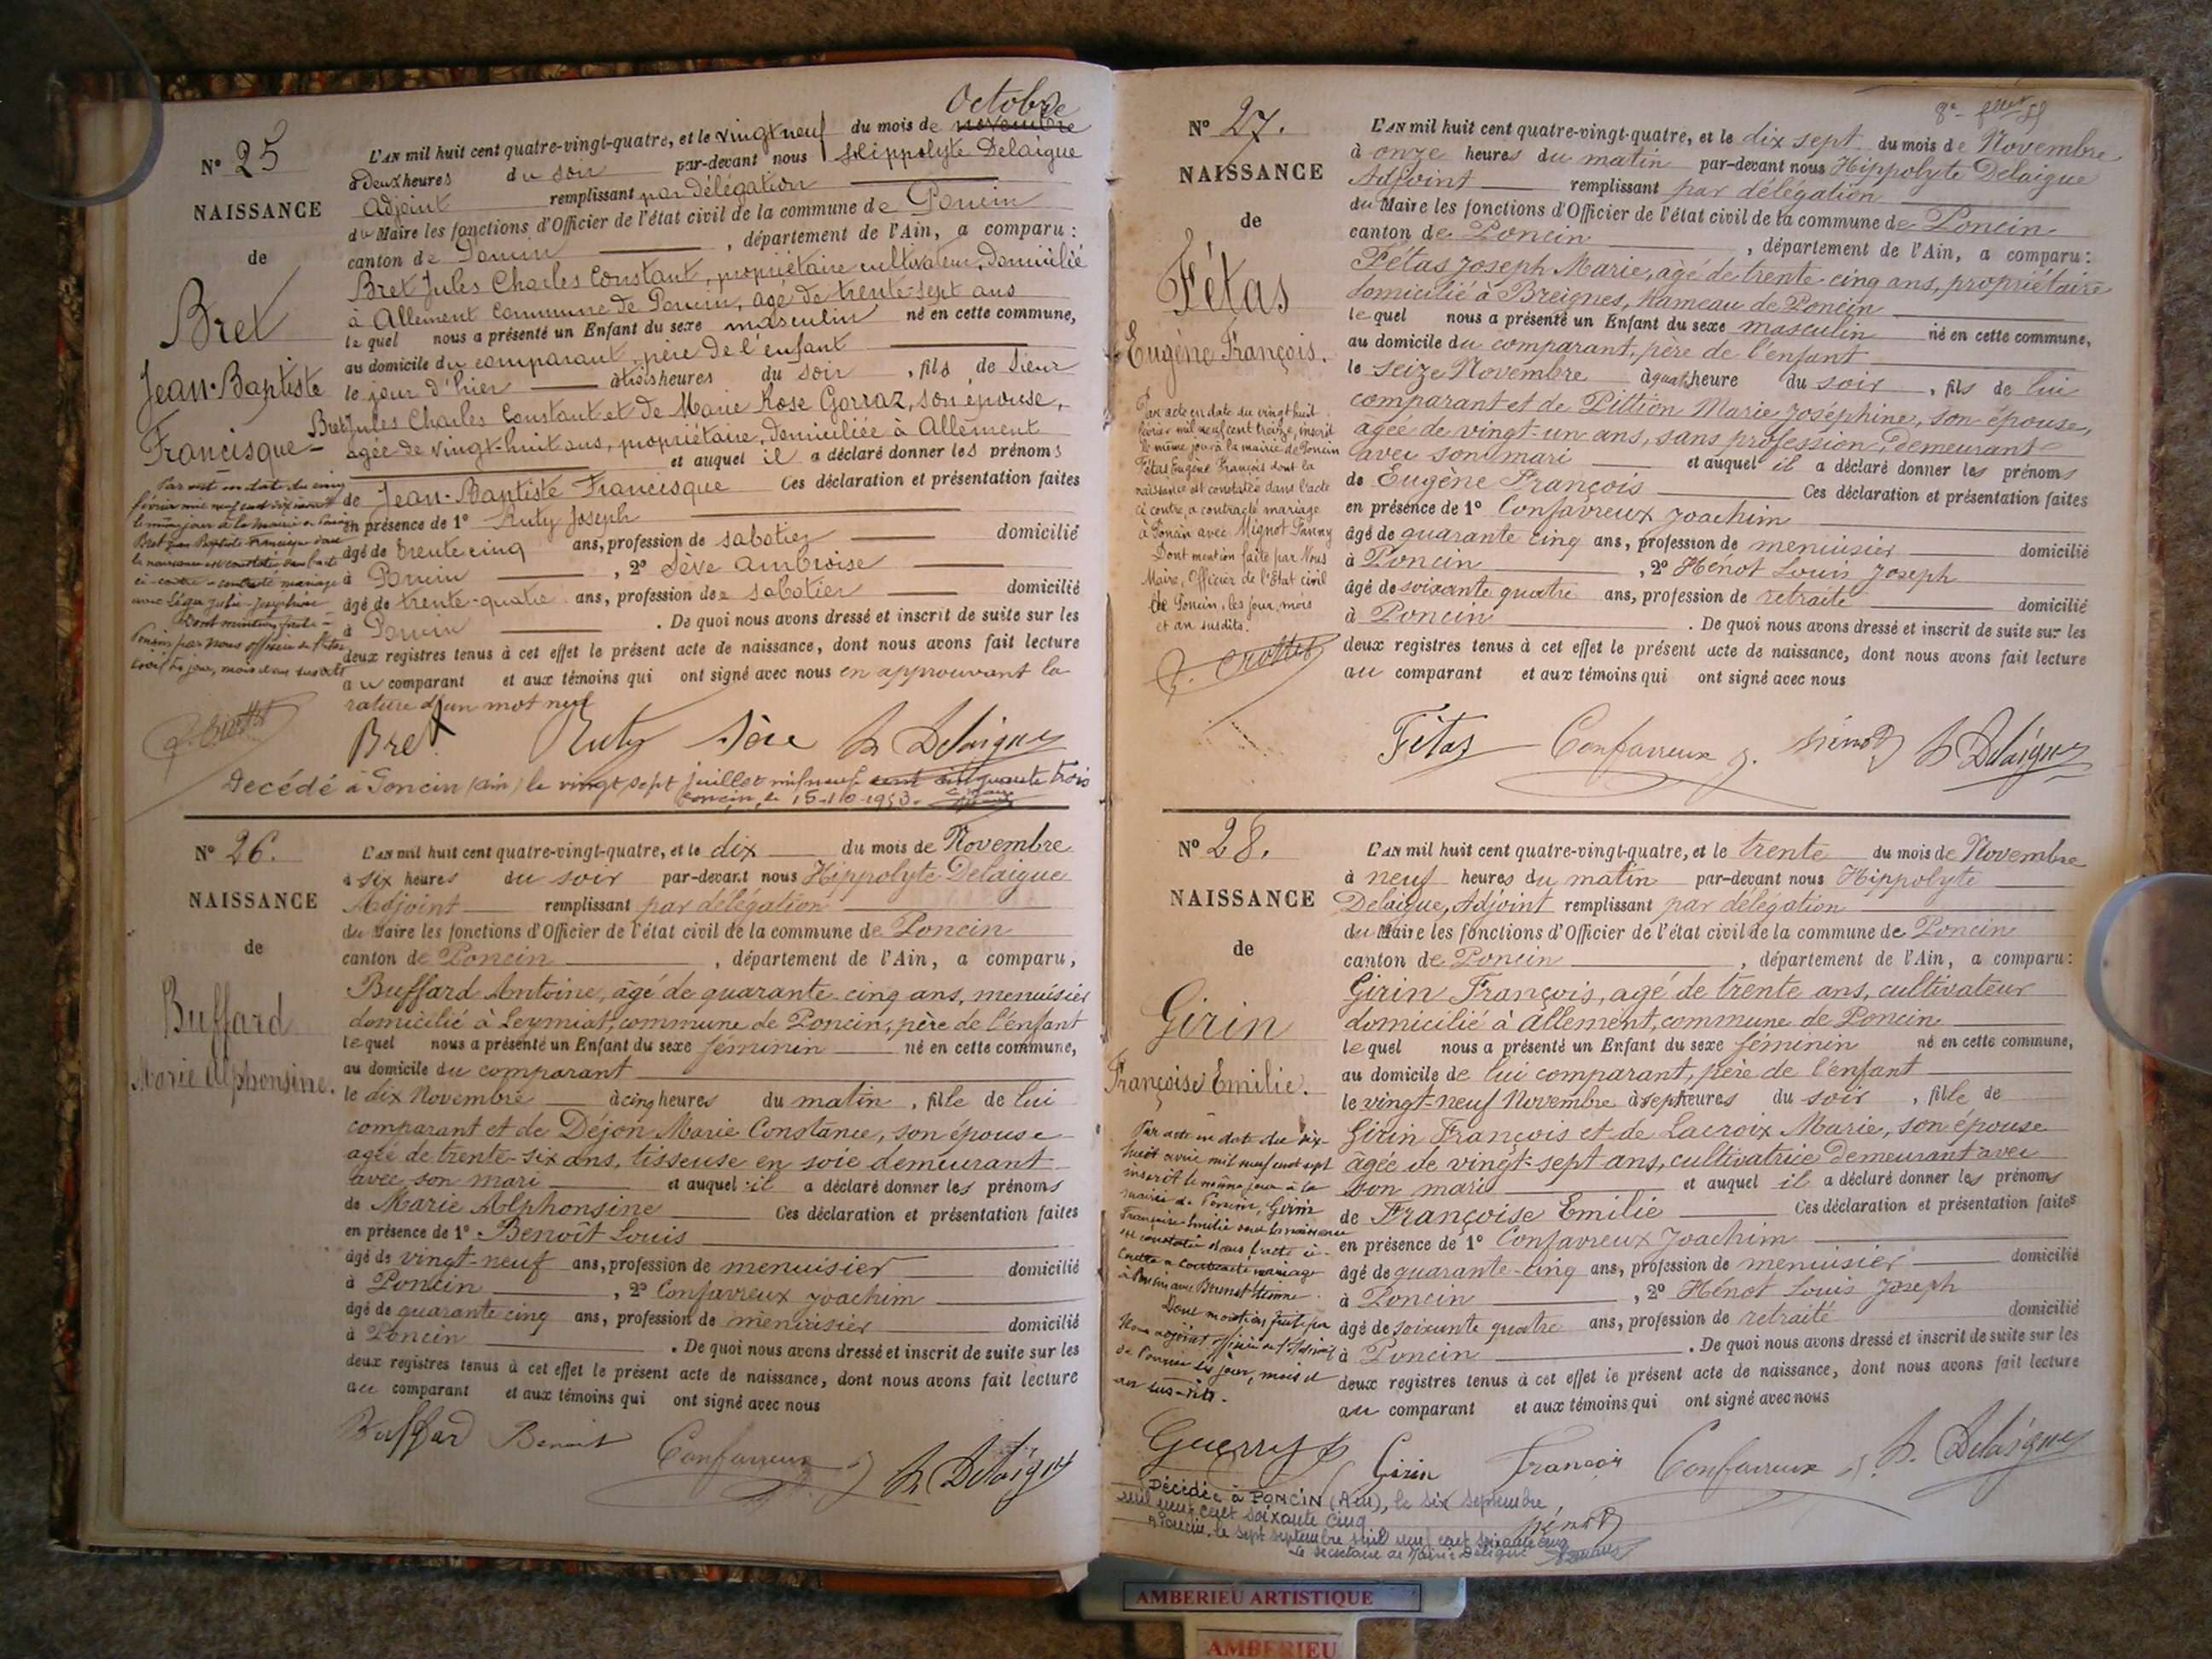 Nº 25
NAISSANCE
de
Bret
Jean-Baptiste
Francisque
Octobre
L'AN mil huit cent quatre-vingt-quatre, et le vingt neuf du mois de novembre
à Deux heures du soir par-devant nous Hippolyte Delaigue
Adjoint remplissant par Délégation
du Maire les fonctions d'Officier de l'état civil de la commune de Poncin
canton de Poncin, département de l'Ain, a comparu :
Bret Jules Charles Constant, propriétaire cultivateur, Domicilié
à Allement Commune de Poncin, agé de trente-sept ans
lequel nous a présenté un Enfant du sexe masculin né en cette commune,
au domicile du comparant, père de l'enfant
le jour d'hier à trois heures du soir, fils de Sieur
Bret Jules Charles Constant et de Marie Rose Gorraz, son épouse,
agée de vingt-huit ans, propriétaire, Domiciliée à Allement
et auquel il a déclaré donner les prénoms
de Jean-Baptiste Francisque Ces déclaration et présentation faites
en présence de 1º Ruty Joseph
âgé de trente cinq ans, profession de sabotier domicilié
à Poncin, 2º Sève Ambroise
âgé de trente-quatre ans, profession de sabotier domicilié
à Poncin. De quoi nous avons dressé et inscrit de suite sur les
deux registres tenus à cet effet le présent acte de naissance, dont nous avons fait lecture
au comparant et aux témoins qui ont signé avec nous en approuvant la
rature d'un mot nul
Par acte en date du cinq
février mil neuf cent dix
le même jour à la mairie de Poncin
Bret Jean Baptiste Francisque dont
la naissance est constatée dans l'acte
ci-contre a contracté mariage
avec Léger Julie Joséphine
Dont mention faite
Poncin par nous officier de l'état
civil les jour, mois et an susdits
Bret Ruty Sève H Delaigue
Décédé à Poncin (Ain) le vingt sept juillet mil neuf cent cinquante trois
Poncin, le 15-10-1953.
Nº 26.
NAISSANCE
de
Buffard
Marie Alphonsine.
L'AN mil huit cent quatre-vingt-quatre, et le dix du mois de Novembre
à six heures du soir par-devant nous Hippolyte Delaigue
Adjoint remplissant par délégation
du Maire les fonctions d'Officier de l'état civil de la commune de Poncin
canton de Poncin, département de l'Ain, a comparu,
Buffard Antoine, âgé de quarante-cinq ans, menuisier
domicilié à Leymiat, commune de Poncin, père de l'enfant
lequel nous a présenté un Enfant du sexe féminin né en cette commune,
au domicile du comparant
le dix Novembre à cinq heures du matin, fille de lui
comparant et de Déjon Marie Constance, son épouse
agée de trente-six ans, tisseuse en soie demeurant
avec son mari et auquel il a déclaré donner les prénoms
de Marie Alphonsine Ces déclaration et présentation faites
en présence de 1º Benoît Louis
âgé de vingt-neuf ans, profession de menuisier domicilié
à Poncin, 2º Confavreux Joachim
âgé de quarante cinq ans, profession de menuisier domicilié
à Poncin. De quoi nous avons dressé et inscrit de suite sur les
deux registres tenus à cet effet le présent acte de naissance, dont nous avons fait lecture
au comparant et aux témoins qui ont signé avec nous
Buffard Benoit Confavreux J H Delaigue
Nº 27.
NAISSANCE
de
Fétas
Eugène François.
L'AN mil huit cent quatre-vingt-quatre, et le dix sept du mois de Novembre
à onze heures du matin par-devant nous Hippolyte Delaigue
Adjoint remplissant par délégation
du Maire les fonctions d'Officier de l'état civil de la commune de Poncin
canton de Poncin, département de l'Ain, a comparu :
Fétas Joseph Marie, agé de trente-cinq ans, propriétaire
domicilié à Breignes, hameau de Poncin
lequel nous a présenté un Enfant du sexe masculin né en cette commune,
au domicile du comparant, père de l'enfant
le seize Novembre à quat. heure du soir, fils de lui
comparant et de Pittion Marie Joséphine, son épouse,
agée de vingt-un ans, sans profession, demeurant
avec son mari et auquel il a déclaré donner les prénoms
de Eugène François Ces déclaration et présentation faites
en présence de 1º Confavreux Joachim
âgé de quarante cinq ans, profession de menuisier domicilié
à Poncin, 2º Hénot Louis Joseph
âgé de soixante quatre ans, profession de retraité domicilié
à Poncin. De quoi nous avons dressé et inscrit de suite sur les
deux registres tenus à cet effet le présent acte de naissance, dont nous avons fait lecture
au comparant et aux témoins qui ont signé avec nous
Par acte en date du vingt huit
février mil neuf cent treize, inscrit
le même jour à la mairie de Poncin
Fétas Eugène François dont la
naissance est constatée dans l'acte
ci contre, a contracté mariage
à Poncin avec Mignot Fanny
Dont mention faite par Nous
Maire, Officier de l'état civil
de Poncin, les jour, mois
et an susdits.
Fétas Confavreux J. Hénot H Delaigue
Nº 28.
NAISSANCE
de
Girin
Françoise Emilie.
L'AN mil huit cent quatre-vingt-quatre, et le trente du mois de Novembre
à neuf heures du matin par-devant nous Hippolyte
Delaigue, Adjoint remplissant par délégation
du Maire les fonctions d'Officier de l'état civil de la commune de Poncin
canton de Poncin, département de l'Ain, a comparu :
Girin François, agé de trente ans, cultivateur
domicilié à Allement, commune de Poncin
lequel nous a présenté un Enfant du sexe féminin né en cette commune,
au domicile de lui comparant, père de l'enfant
le vingt-neuf Novembre à sept heures du soir, fille de
Girin François et de Lacroix Marie, son épouse
âgée de vingt-sept ans, cultivatrice demeurant avec
son mari et auquel il a déclaré donner les prénoms
de Françoise Emilie Ces déclaration et présentation faites
en présence de 1º Confavreux Joachim
âgé de quarante-cinq ans, profession de menuisier domicilié
à Poncin, 2º Hénot Louis Joseph
âgé de soixante quatre ans, profession de retraité domicilié
à Poncin. De quoi nous avons dressé et inscrit de suite sur les
deux registres tenus à cet effet le présent acte de naissance, dont nous avons fait lecture
au comparant et aux témoins qui ont signé avec nous
Par acte en date du dix-
huit avril mil neuf cent sept
inscrit le même jour à la
mairie de Poncin, Girin
Françoise Emilie dont la naissance
est constatée dans l'acte ci-
contre a contracté mariage
à Poncin avec Brunet Etienne.
Dont mention faite par
Nous adjoint officier de l'état civil
de Poncin les jour, mois et
an sus-dits.
Guerry
Girin François Confavreux J. H. Delaigue
Hénot
Décédée à PONCIN (Ain), le six septembre
mil neuf cent soixante cinq
A Poncin, le sept septembre mil neuf cent soixante cinq
Le secrétaire de Mairie Délégué
AMBERIEU ARTISTIQUE
AMBERIEU